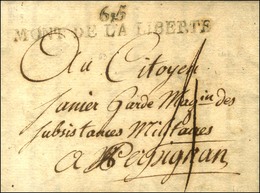 65
MONT DE LA LIBERTE
Au Citoyen
Janier Garde Magin des
subsistances Militaires
a Perpignan